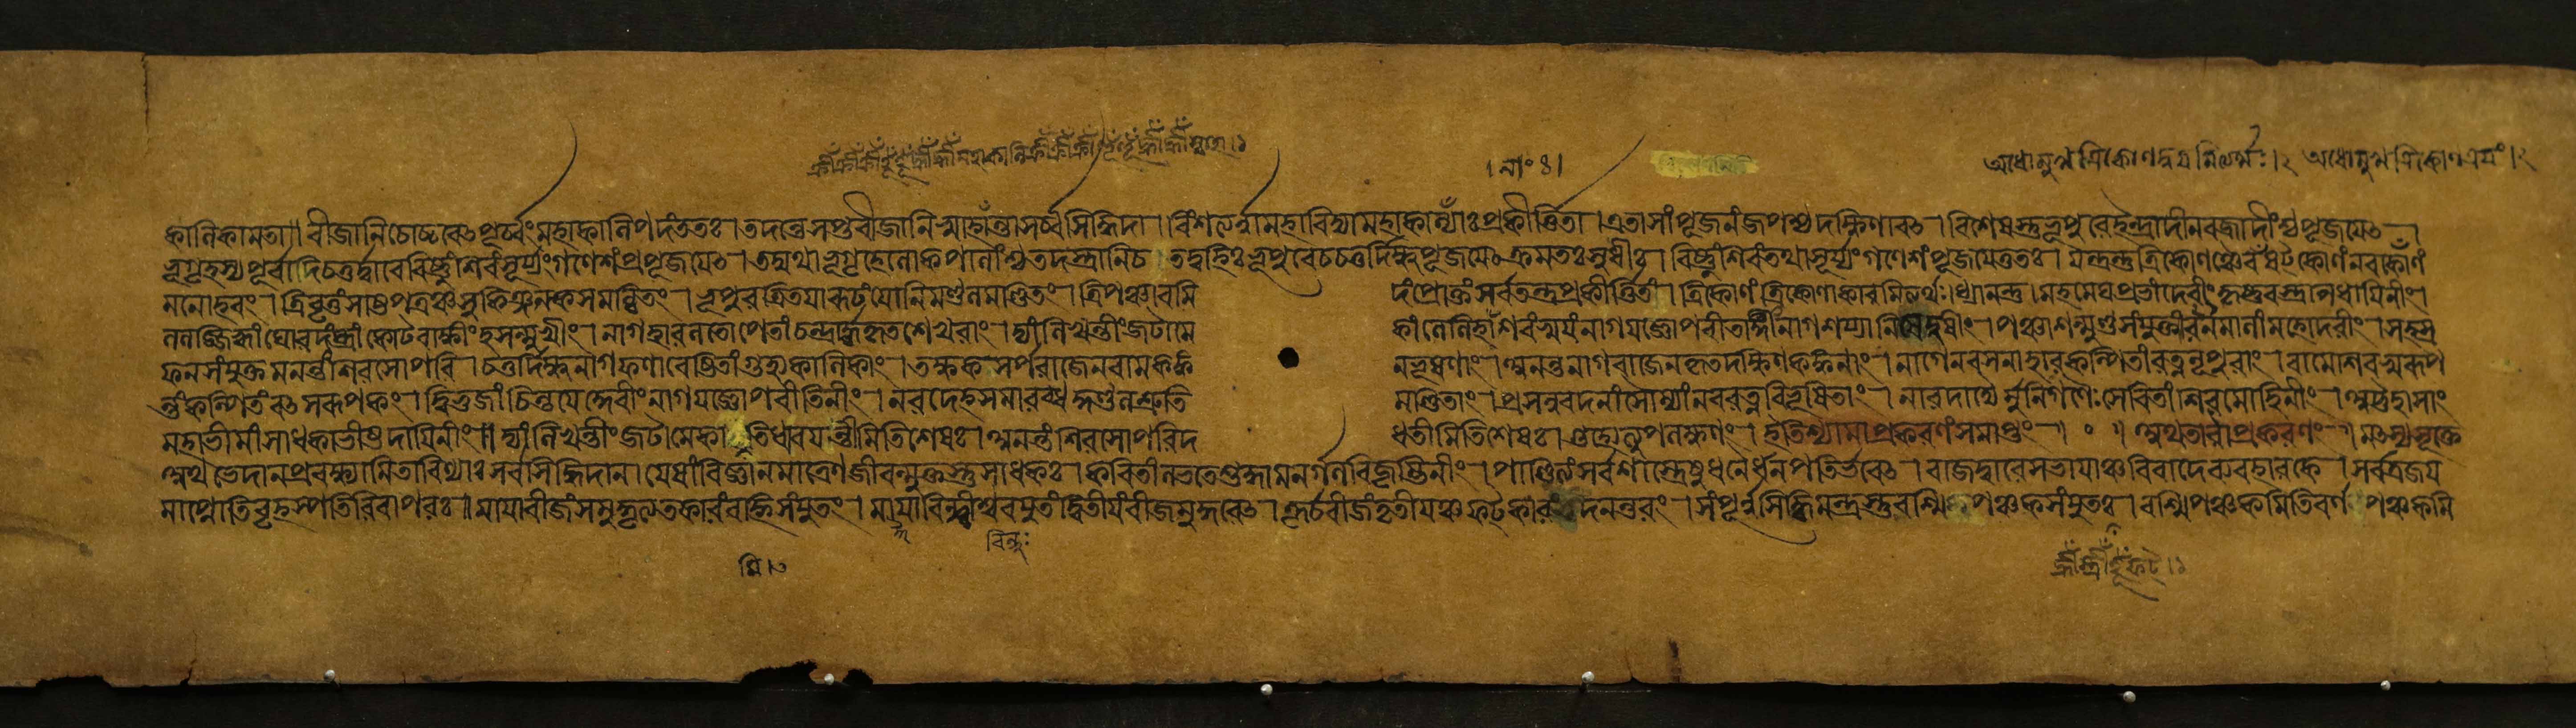 ক্রীঁক্রীঁক্রীঁহূঁহূঁহ্রীঁহ্রীঁমহাকালিক্রীঁক্রীঁক্রীঁহূঁহূঁহ্রীঁহ্রীঁস্বাহা।১
অধোমুখত্রিকোণদ্বয়মিত্যর্থঃ।২ অধোমুখত্রিকোণত্রয়ং।২
কালিকামতা॥ বীজানিচোদ্ধরেৎপূর্ব্বংমহাকালিপদংততঃ। তদন্তেসপ্তবীজানিস্বাহান্তাসর্ব্বসিদ্ধিদা। বিংশত্যর্ণামহাবিদ্যামহাকাল্যাঃপ্রকীর্ত্তিতা। এতাসাংপূজনংজপশ্চদক্ষিণাবৎ। বিশেষস্তুভূপুরেইন্দ্রাদীনবজ্রাদীংশ্চপূজয়েৎ।
ভূগৃহস্যপূর্বাদিচতুর্দ্বারেবিষ্ণুংশিবংসূর্য্যংগণেশংপ্রপূজয়েৎ। তদ্যথাভূগৃহেলোকপালাংশ্চতদস্ত্রানিচ তদ্বহিঃ। ভূপুরেচচতুর্দিক্ষুপূজয়েৎক্রমতঃসুধীঃ। বিষ্ণুংশিবংতথাসূর্য্যংগণেশংপূজয়েত্ততঃ। যন্ত্রন্তুত্রিকোণঞ্চৈবষট্কোণংনবকোণং
মনোহরং। ত্রিবৃত্তংসাষ্টপত্রঞ্চসুকিঞ্জল্কসমন্বিতং। ভূপুরত্রিতয়ারূঢংযোনিমণ্ডলমণ্ডিতং। ত্রিপঞ্চারমি দংপ্রোক্তংসর্বতন্ত্রপ্রকীর্ত্তিতং। ত্রিকোণংত্রিকোণাকারমিত্যর্থঃ। ধ্যানন্তু। মহামেঘপ্রভাংদেবীংকৃষ্ণবস্ত্রাপিধায়িনীং।
ললজ্জিহ্বাংঘোরদংষ্ট্রাংকোটরাক্ষীংহসন্মুখীং। নাগহারলতোপেতাংচন্দ্রার্দ্ধকৃতশেখরাং। দ্যাংলিখন্তীংজটামে কাংলেলিহাশবংস্বয়ংনাগযজ্ঞোপবীতাঙ্গীংনাগশয্যানিষেদুষীং। পঞ্চাশন্মুণ্ডসংযুক্তাংবনমালাংমহোদরীং। সহস্র
ফনসংযুক্তমনন্তংশিরসোপরি। চতুর্দিক্ষুনাগফণাবেষ্টিতাংগুহ্যকালিকাং। তক্ষকসর্পরাজেনবামকঙ্ক নভূষণাং। অনন্তনাগরাজেনকৃতদক্ষিণকঙ্কনাং। নাগেনরসনাহারকল্পিতাংরত্ননূপুরাং। বামেশিবস্বরূপ
ন্তংকল্পিতংবৎসরূপকং। দ্বিভুজাংচিন্তয়েদ্দেবীংনাগযজ্ঞোপবীতিনীং। নরদেহসমাবদ্ধকুণ্ডলশ্রুতি মণ্ডিতাং। প্রসন্নবদনাংসৌম্যাংনবরত্নবিভূষিতাং। নারদাদ্যৈর্মুনিগণৈঃসেবিতাংশিবমোহিনীং। অট্টহাসাং
মহাভীমাংসাধকাভীষ্টদায়িনীং॥ দ্যাংলিখন্তীংজটামেকামিতিধারয়ন্তীমিতিশেষঃ। অনন্তংশিরসোপরিদ ধতীমিতিশেষঃ। গুহ্যেত্যুপলক্ষণং। ইতিশ্যামাপ্রকরণংসমাপ্তং॥ ॰ ॥ অথতারাপ্রকরণং॥ মৎস্যসূক্তে
অথভেদানপ্রবক্ষ্যামিতারিণ্যাঃসর্বসিদ্ধিদান। যেষাংবিজ্ঞানমাত্রেণজীবন্মুক্তস্তুসাধকঃ। কবিতাংলভতে বিজৃম্ভিনীং। পাণ্ডিত্যংসর্বশাস্ত্রেষুধনৈর্ধনপতির্ভবেৎ। রাজদ্বারেসভায়াঞ্চবিবাদেব্যবহারকে। সর্বত্রজয়
মাপ্নোতিবৃহস্পতিরিবাপরঃ॥ মায়াবীজংসমুদ্ধৃত্যতকারংবহ্নিসংযুতং। মায়াবিন্দ্বীশ্বরযুতংদ্বিতীয়ংবীজমুদ্ধরেৎ। কূর্চবীজংতৃতীয়ঞ্চফট্কারংতদনন্তরং। সংপূর্ণসিদ্ধিমন্ত্রস্তুরশ্মিপঞ্চকসংযুতঃ। রশ্মিপঞ্চকমিতিবর্ণপঞ্চকমি
বিন্দুঃ
হ্রীঁত্রীঁহূঁফট্।১